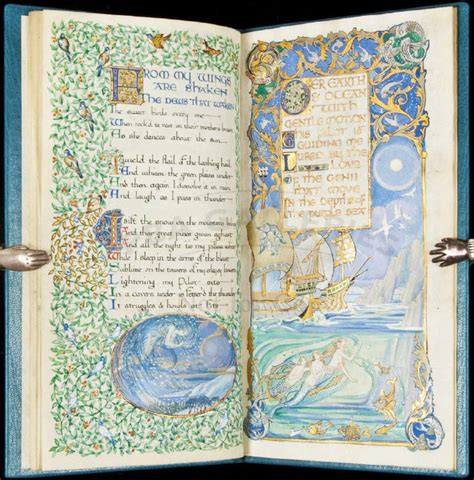 FROM MY WINGS
ARE SHAKEN
THE DEWS THAT WAKEN
The sweet birds every one —
When rock'd to rest on their mother's breast
As she dances about the sun —
I wield the flail of the lashing hail
And whiten the green plains under
And then again I dissolve it in rain
And laugh as I pass in thunder —
I sift the snow on the mountains below
And their great pines groan aghast
And all the night tis my pillow white
While I sleep in the arms of the blast
Sublime on the towers of my skiey bowers
Lightening my Pilot sits
In a cavern under is fetter'd the thunder
It struggles & howls at fits
OVER EARTH
& OCEAN
WITH
GENTLE MOTION
THIS PILOT IS
GUIDING ME
LURED BY THE
LOVE
THE GENII
THAT MOVE
IN THE DEPTHS OF
THE PURPLE SEA